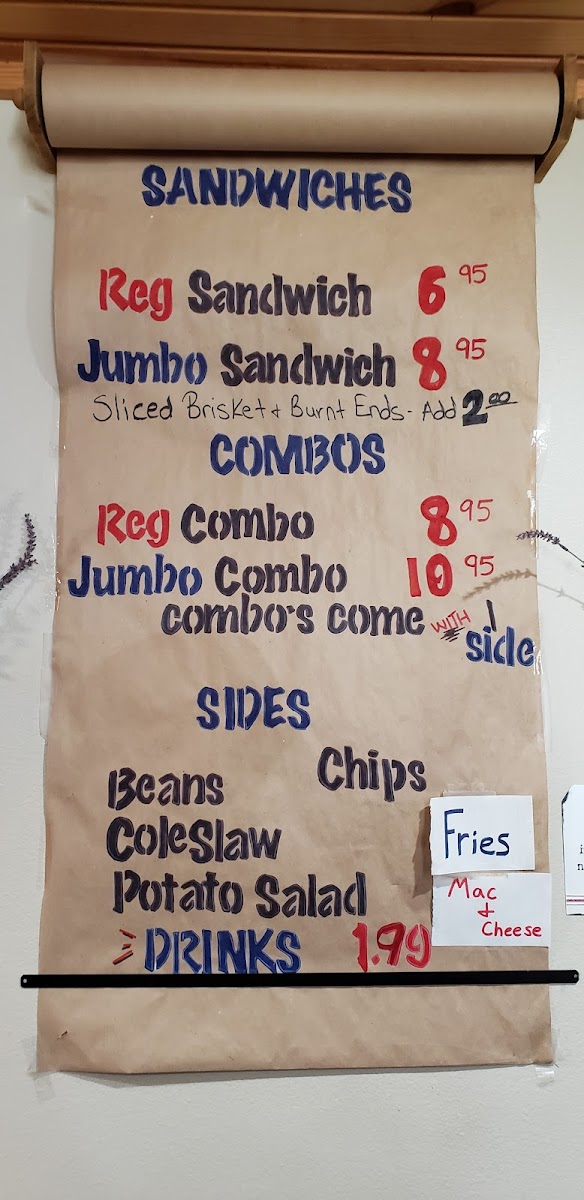 SANDWICHES
Reg Sandwich 6 95
Jumbo Sandwich 8 95
Sliced Brisket & Burnt Ends - Add 2 00
COMBOS
Reg Combo 8 95
Jumbo Combo 10 95
combo's come WITH 1
side
SIDES
Chips
Beans
ColeSlaw
Fries
Potato Salad
Mac
&
Cheese
DRINKS 1.99